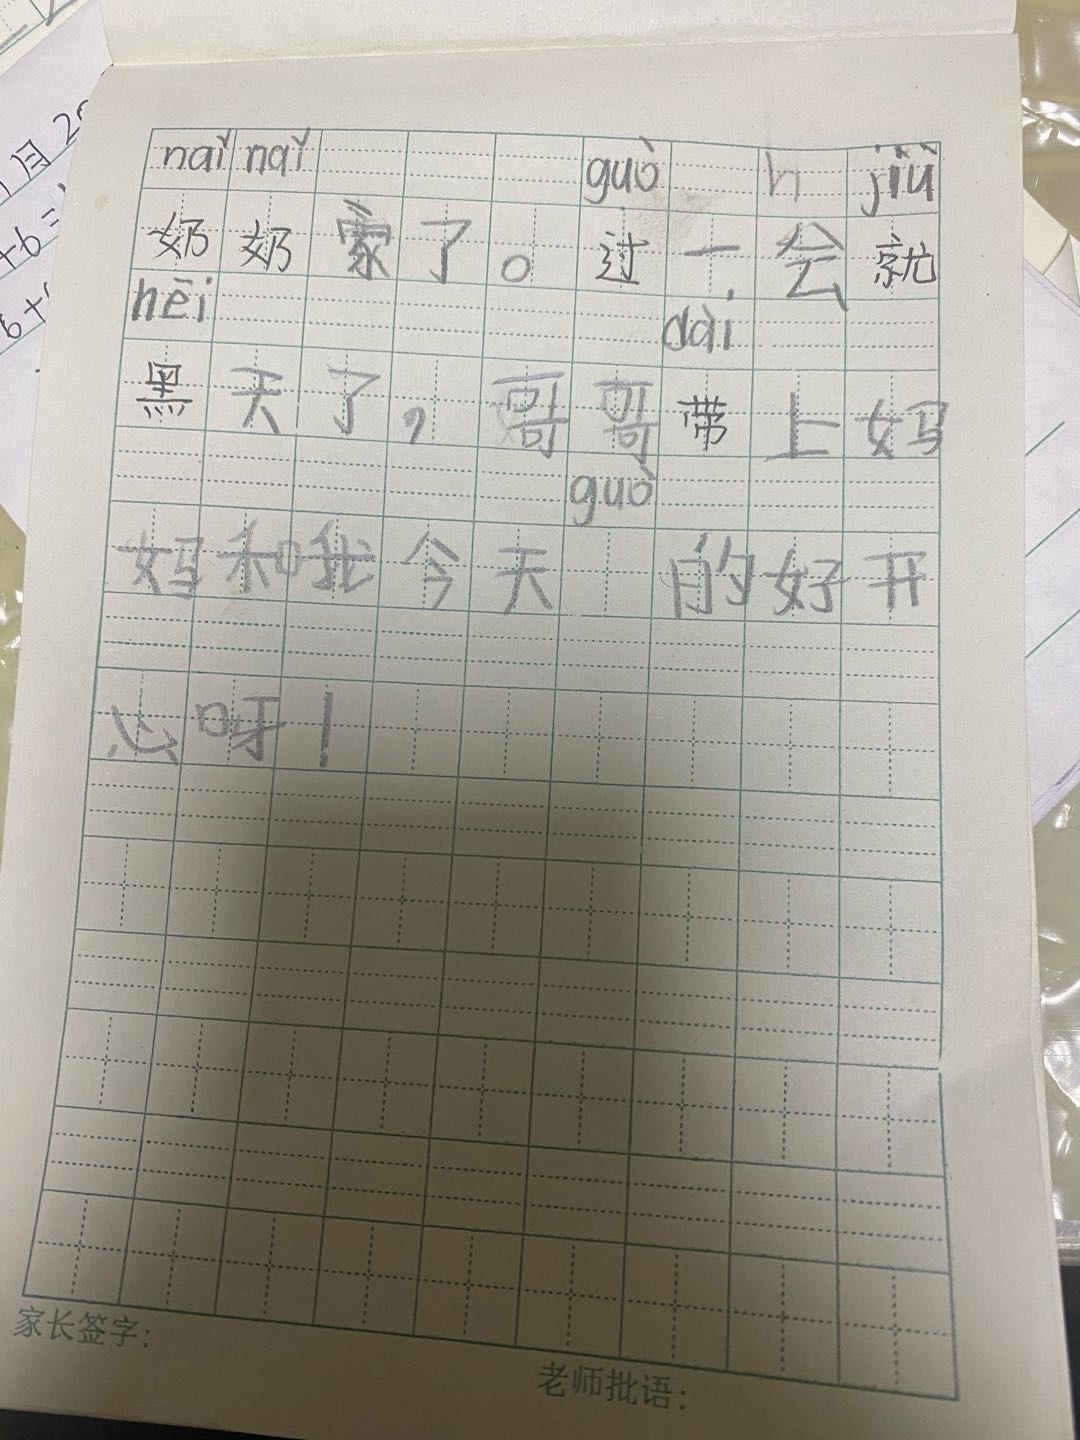 nǎi nǎi guò h jiù
奶奶家了。过一会就
hēi dài
黑天了，哥哥带上妈
guò
妈和我今天 的好开
心呀！
家长签字：
老师批语：